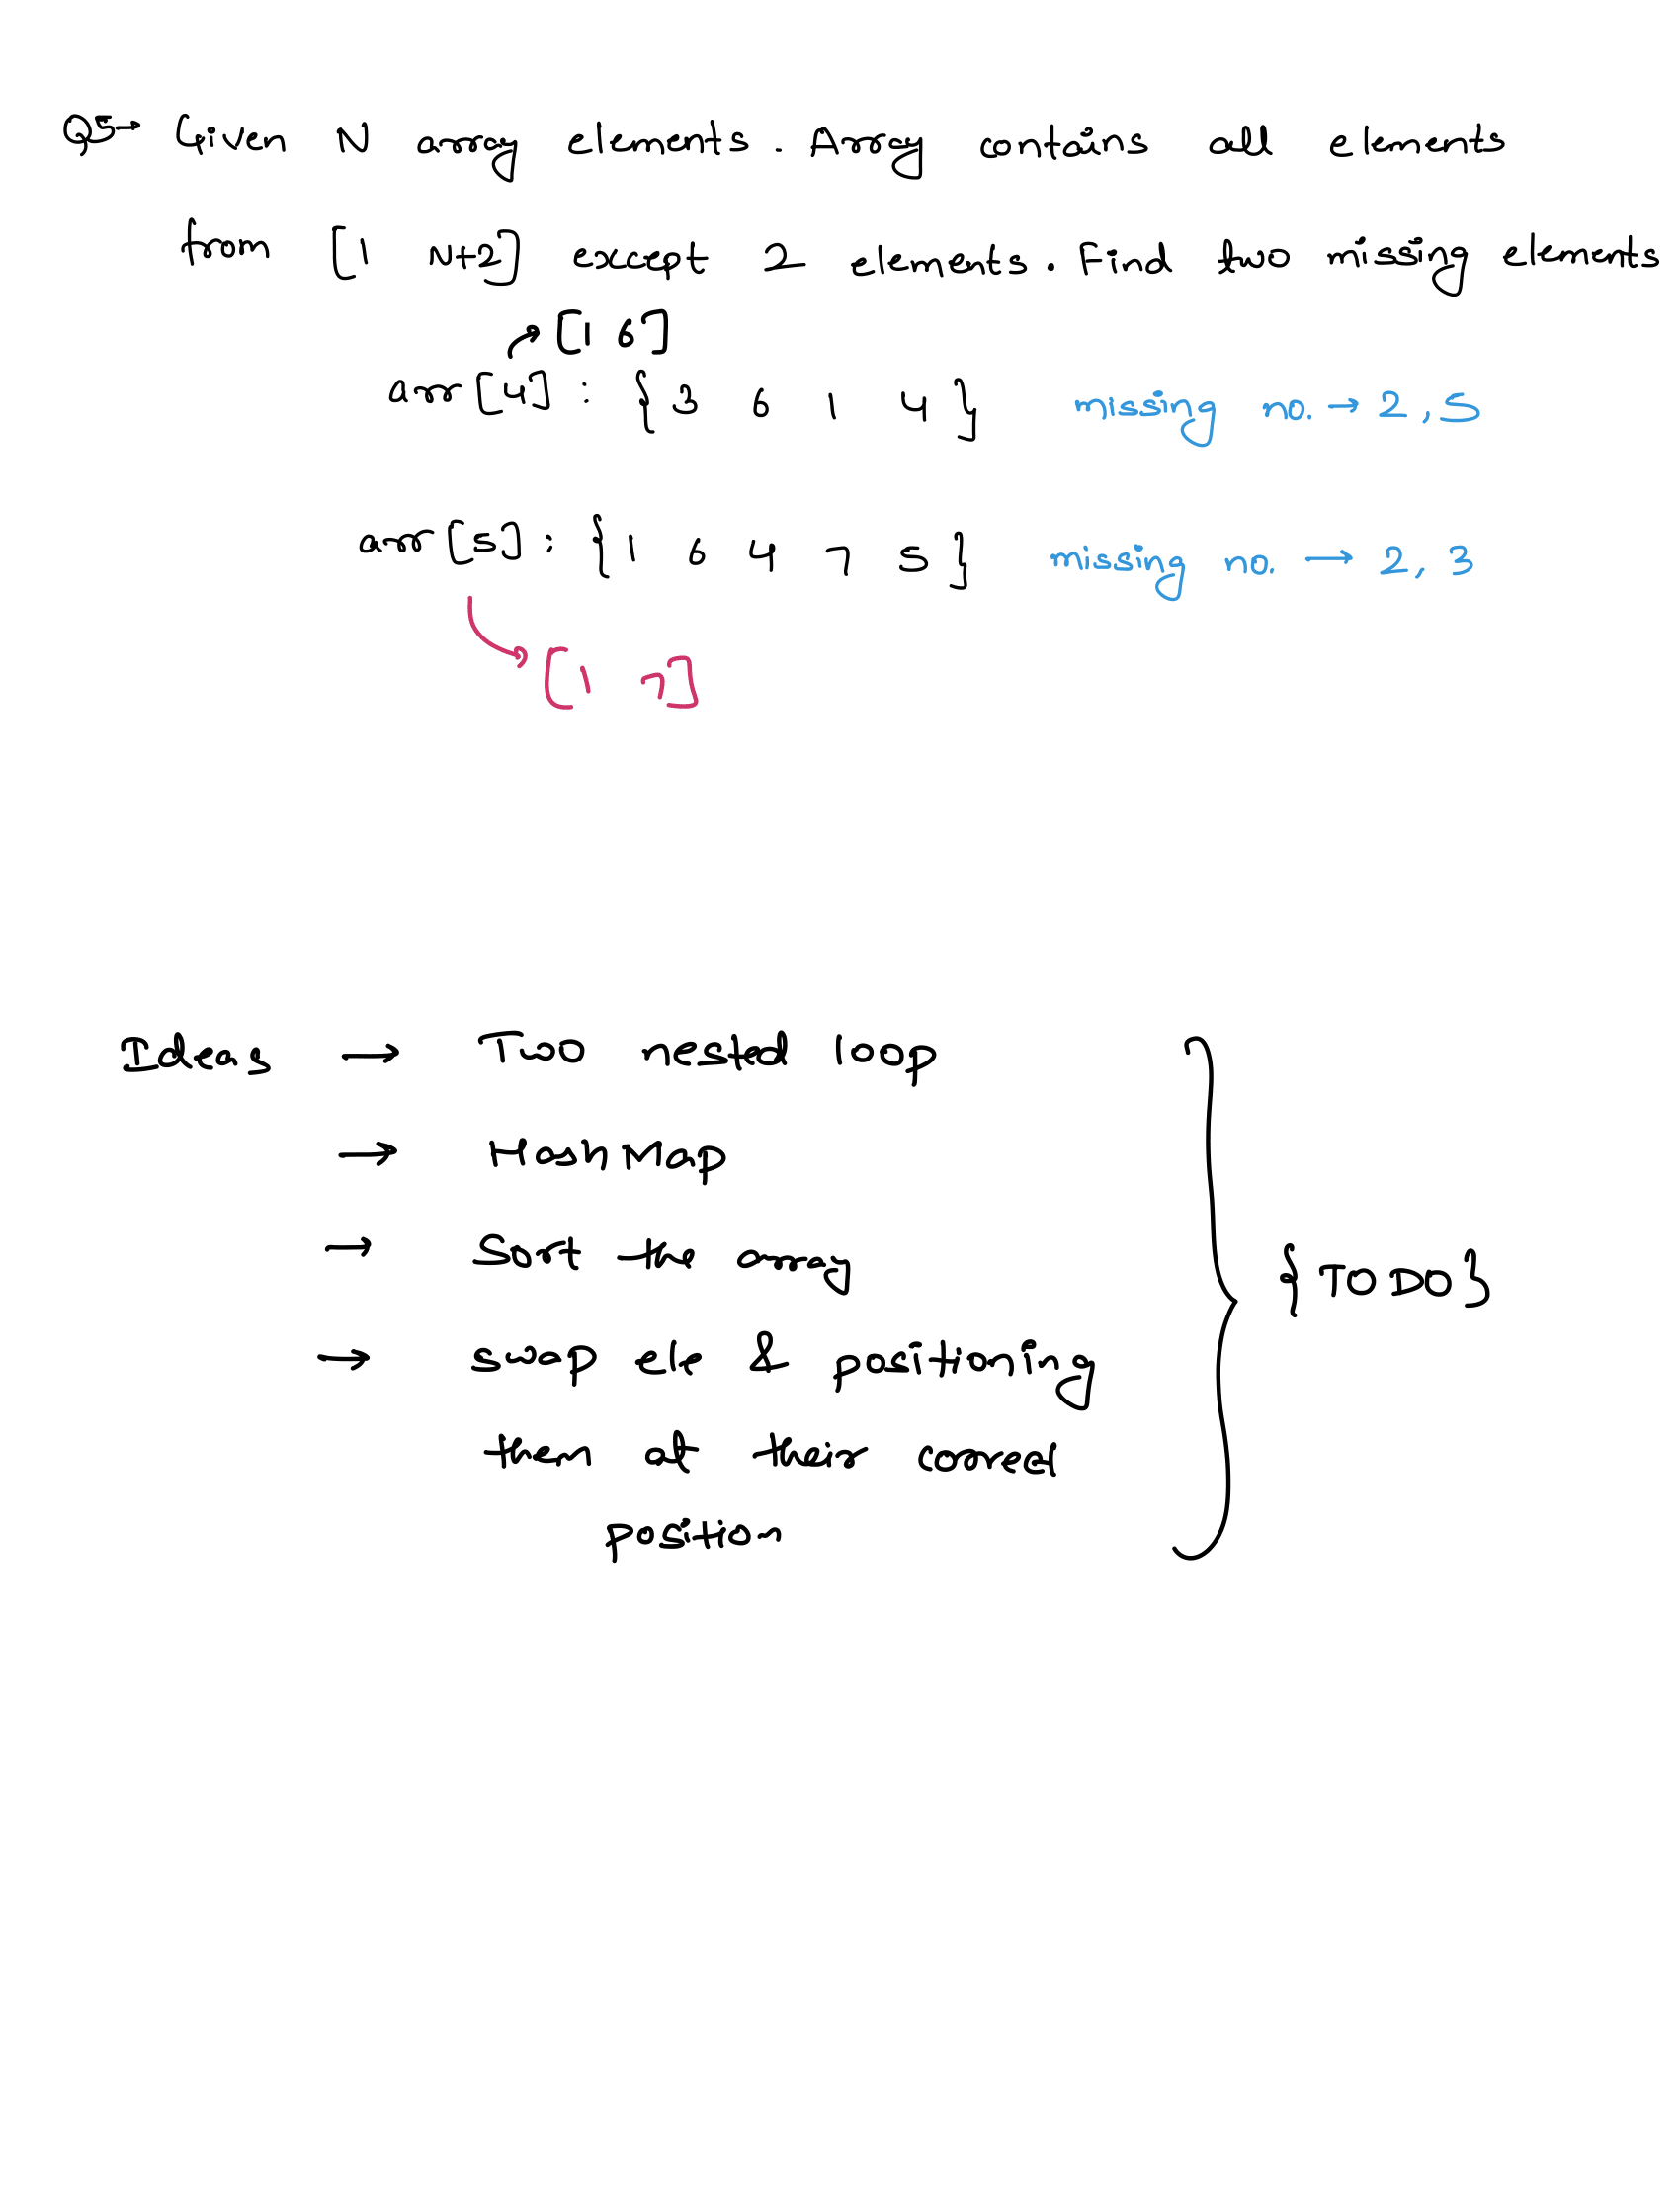 Q5→ Given N array elements. Array contains all elements
from [1 N+2] except 2 elements. Find two missing elements
→ [1 6]
arr[4] : { 3 6 1 4 } missing no. → 2, 5
arr[5] : { 1 6 4 7 5 } missing no. → 2, 3
[1 7]
Ideas → Two nested loop
→ HashMap
→ Sort the array
→ swap ele & positioning
them at their correct
position
{ TO DO }